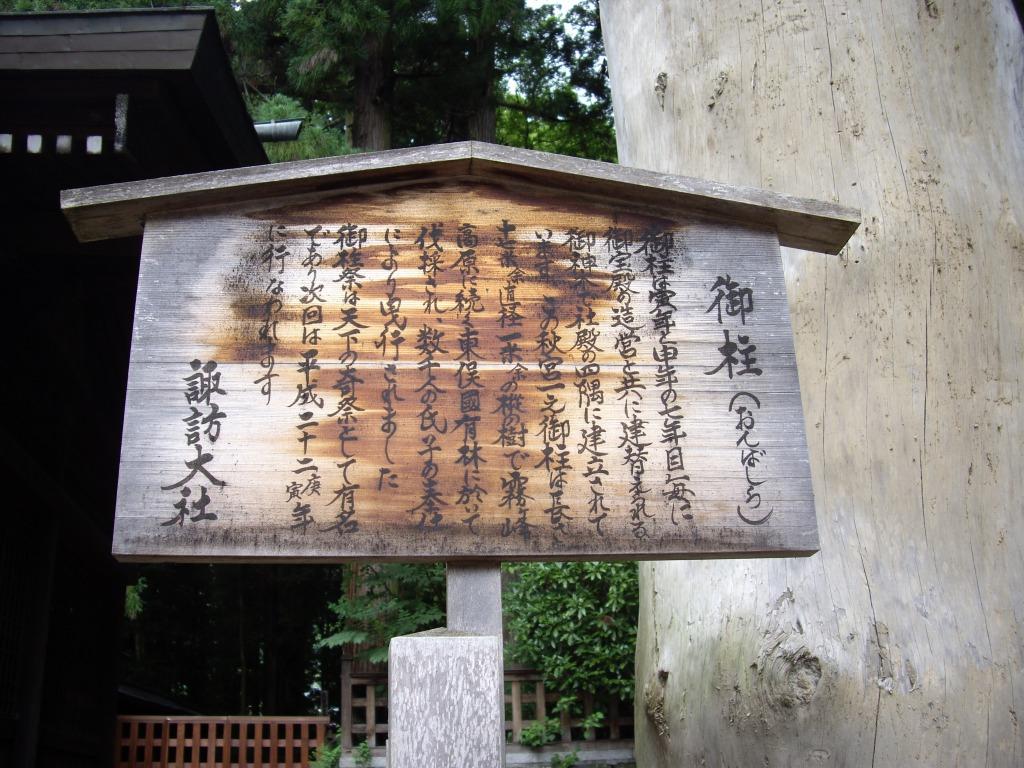 御柱（おんばしら）
御柱は寅年と申年の七年目毎に
御宝殿の造営と共に建替えられる
御神木で社殿の四隅に建立されて
います この秋宮一之御柱は長さ
十七米余直径一米余の樅の樹で霧ヶ峰
高原に続く東俣國有林に於いて
伐採され 数千人の氏子の奉仕
により曳行されました
御柱祭は天下の奇祭として有名
であり次回は平成二十二庚寅年
に行なわれます
諏訪大社